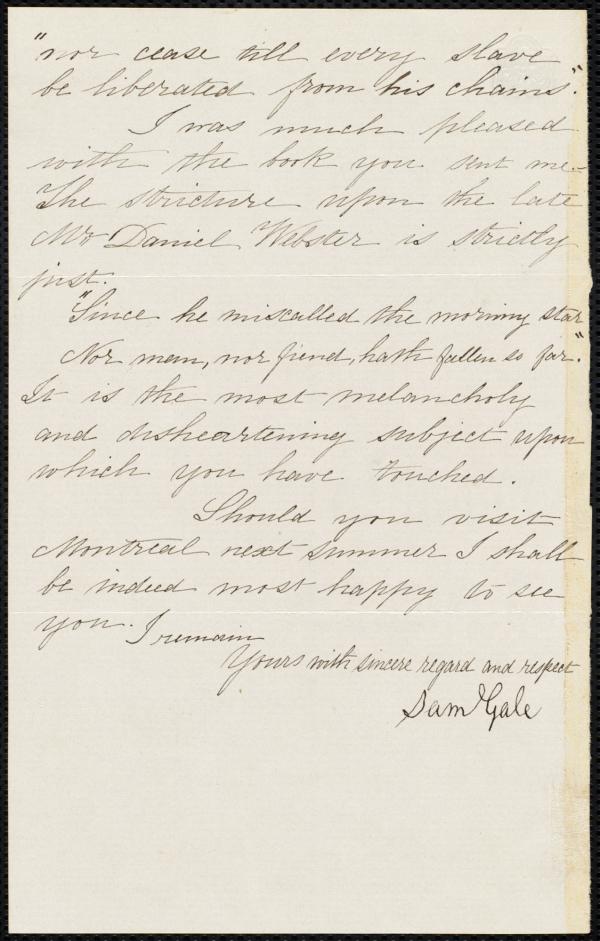 "nor cease till every slave
be liberated from his chains."
I was much pleased
with the book you sent me.-
The stricture upon the late
Mr Daniel Webster is strictly
just.
"Since he miscalled the morning star
Nor man, nor fiend, hath fallen so far."
It is the most melancholy
and disheartening subject upon
which you have touched.
Should you visit
Montreal next summer I shall
be indeed most happy to see
you. I remain
Yours with sincere regard and respect
Sam Gale